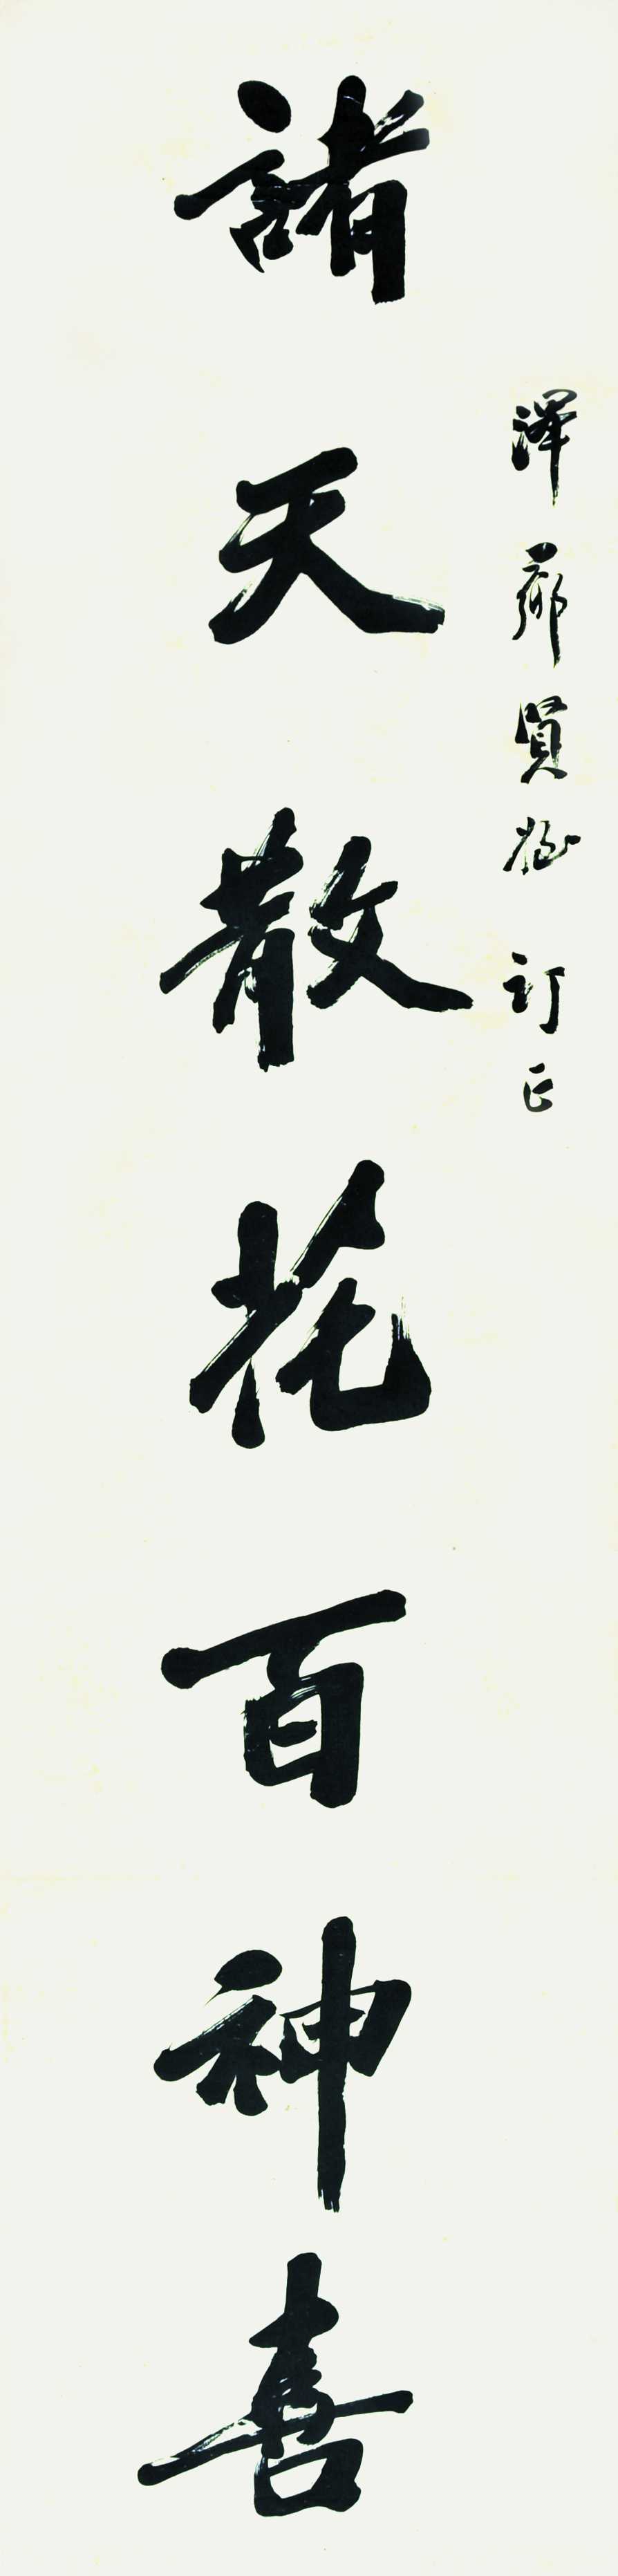 澤鄉賢姪訂正
諸天散花百神喜